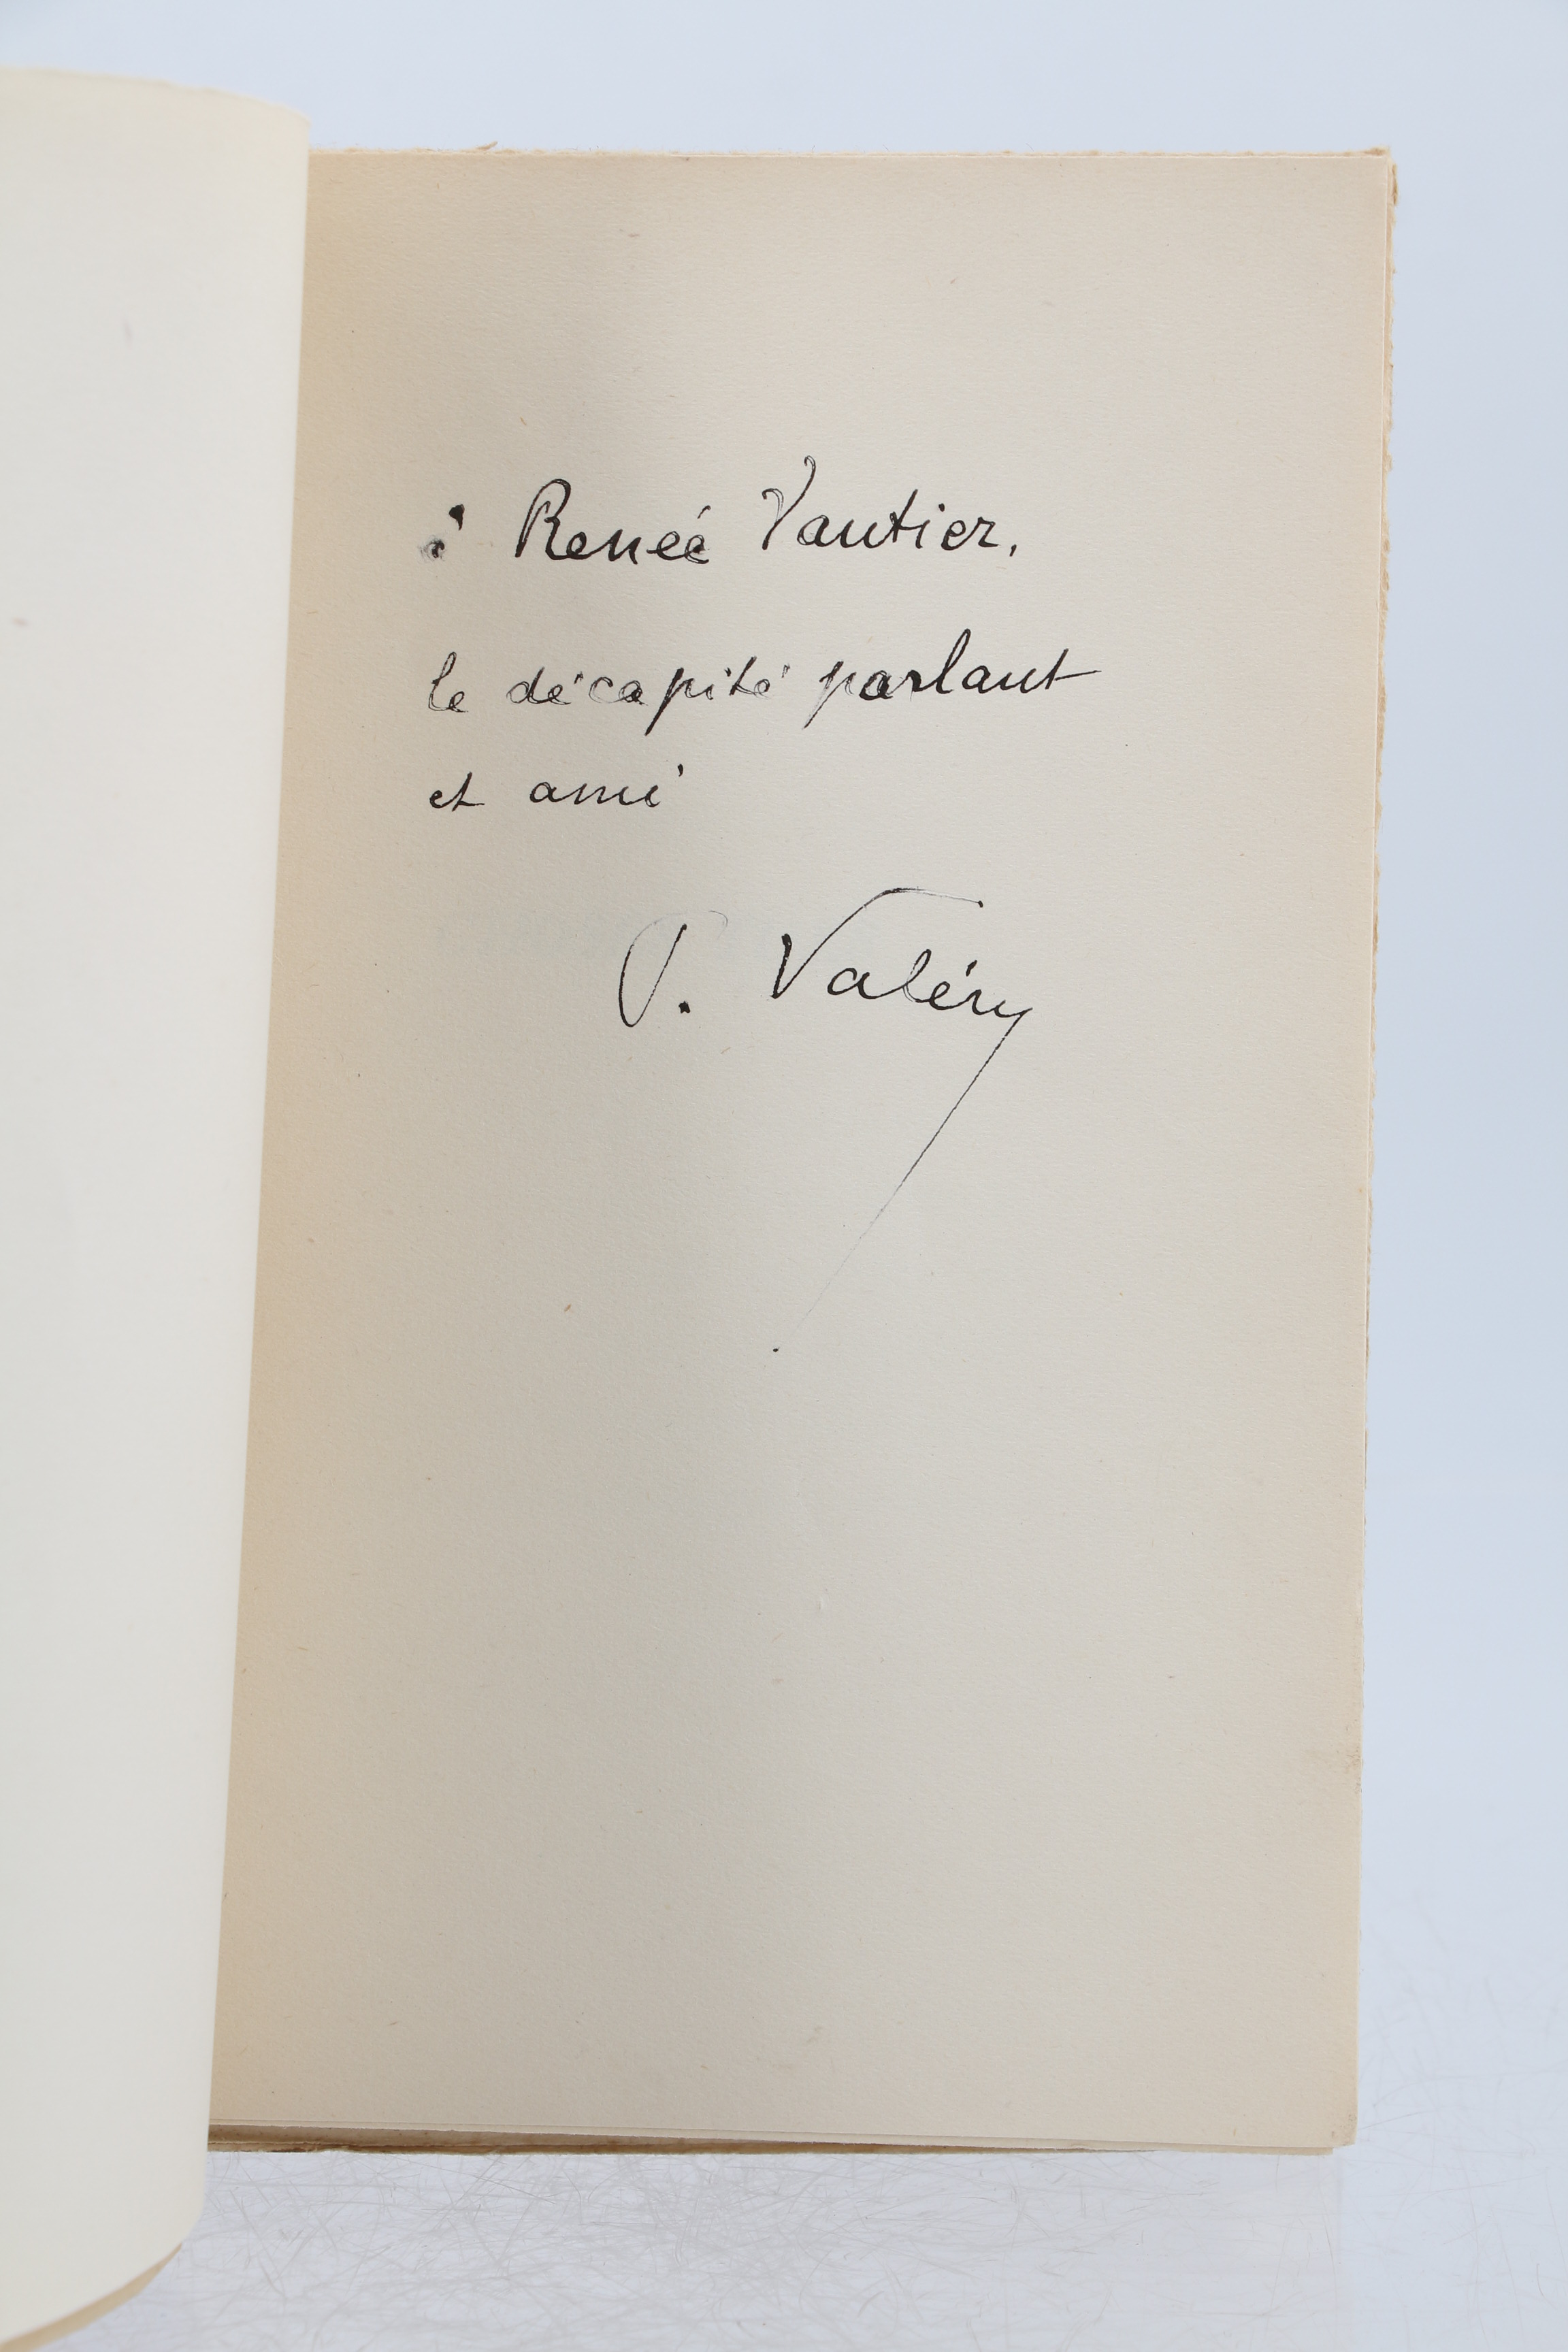 à Renée Vautier,
le décapité parlant
et ami
P. Valéry